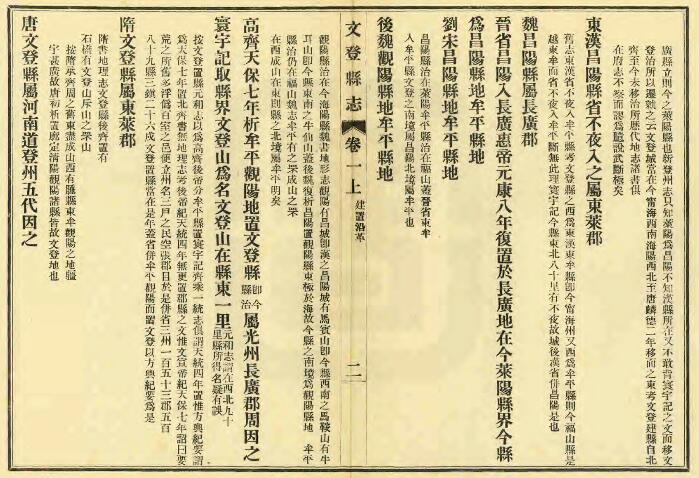 廣縣立則今之萊陽縣也新登州志只知萊陽爲昌陽不知漢縣所在又不敢背寰宇記之文而移文
登治所以遷就之云文登城當在今甯海西南海陽西北至唐麟德二年移前之東考文登建縣自北
齊至今未移治所歷代地志諸書俱
在府志不察而謬爲臆說武斷極矣
東漢昌陽縣省不夜入之屬東萊郡
舊志東漢省不夜入牟平縣考文登縣之西爲東漢東牟縣卽今甯海州又西爲牟平縣則今福山縣是
越東牟而省不夜入牟平斷無此理寰宇記今縣東北八十里有不夜故城後漢省併昌陽是也
魏昌陽縣屬長廣郡
晉省昌陽入長廣惠帝元康八年復置於長廣地在今萊陽縣界今縣
爲昌陽縣地牟平縣地
劉宋昌陽縣地牟平縣地
昌陽縣治在萊陽牟平縣治在福山蓋晉省東牟
入牟平縣文登之南境屬昌陽北境屬牟平也
後魏觀陽縣地牟平縣地
文登縣志
卷一上
建置沿革
二
觀陽縣治在今海陽縣魏書地形志觀陽有昌城卽漢之昌陽城有馬賓山卽今縣西南之馬鞍山有牛
耳山卽今縣東南之牛仙山蓋後魏復析昌陽置觀陽縣東極於海故今縣之南境爲觀陽縣地 牟平
縣治仍在福山魏志牟平有之罘成山之罘
在西成山在東則縣之北境屬牟平明矣
高齊天保七年析牟平觀陽地置文登縣卽今縣治屬光州長廣郡周因之
寰宇記取縣界文登山爲名文登山在縣東一里元和志謂在西北九十里縣所得名疑有誤
按文登置縣元和志以爲高齊後帝分牟平縣置寰宇記齊乘一統志俱謂天統四年置惟方輿紀要謂
爲天保七年置北齊書無地理志考後帝紀天統四年無更置郡縣之文惟文宣帝紀天保七年詔曰要
荒之所舊多浮僞百室之邑便立州名三戶之民空張郡目於是併省三州一百五十三郡五百
八十九縣三鎮二十六戍文登置縣當在是年蓋省併牟平觀陽而置文登以方輿紀要爲是
隋文登縣屬東萊郡
隋書地理志文登縣後齊置有
石橋有文登山斥山之罘山
按隋承齊周之舊東濂成山西有腄縣東牟觀陽之地疆
宇甚廣故唐初析置廓定清陽觀陽諸縣皆故文登地也
唐文登縣屬河南道登州五代因之